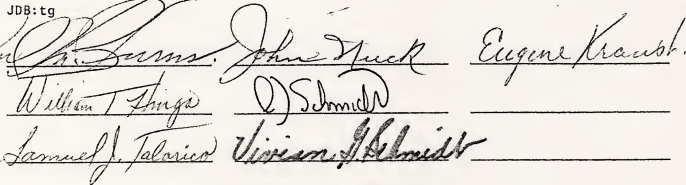 JDB:tg
Burns. John Nuck Eugene Kraust.
William T
OJ Schmidt
Samuel J. Talarico Vivian G Schmidt